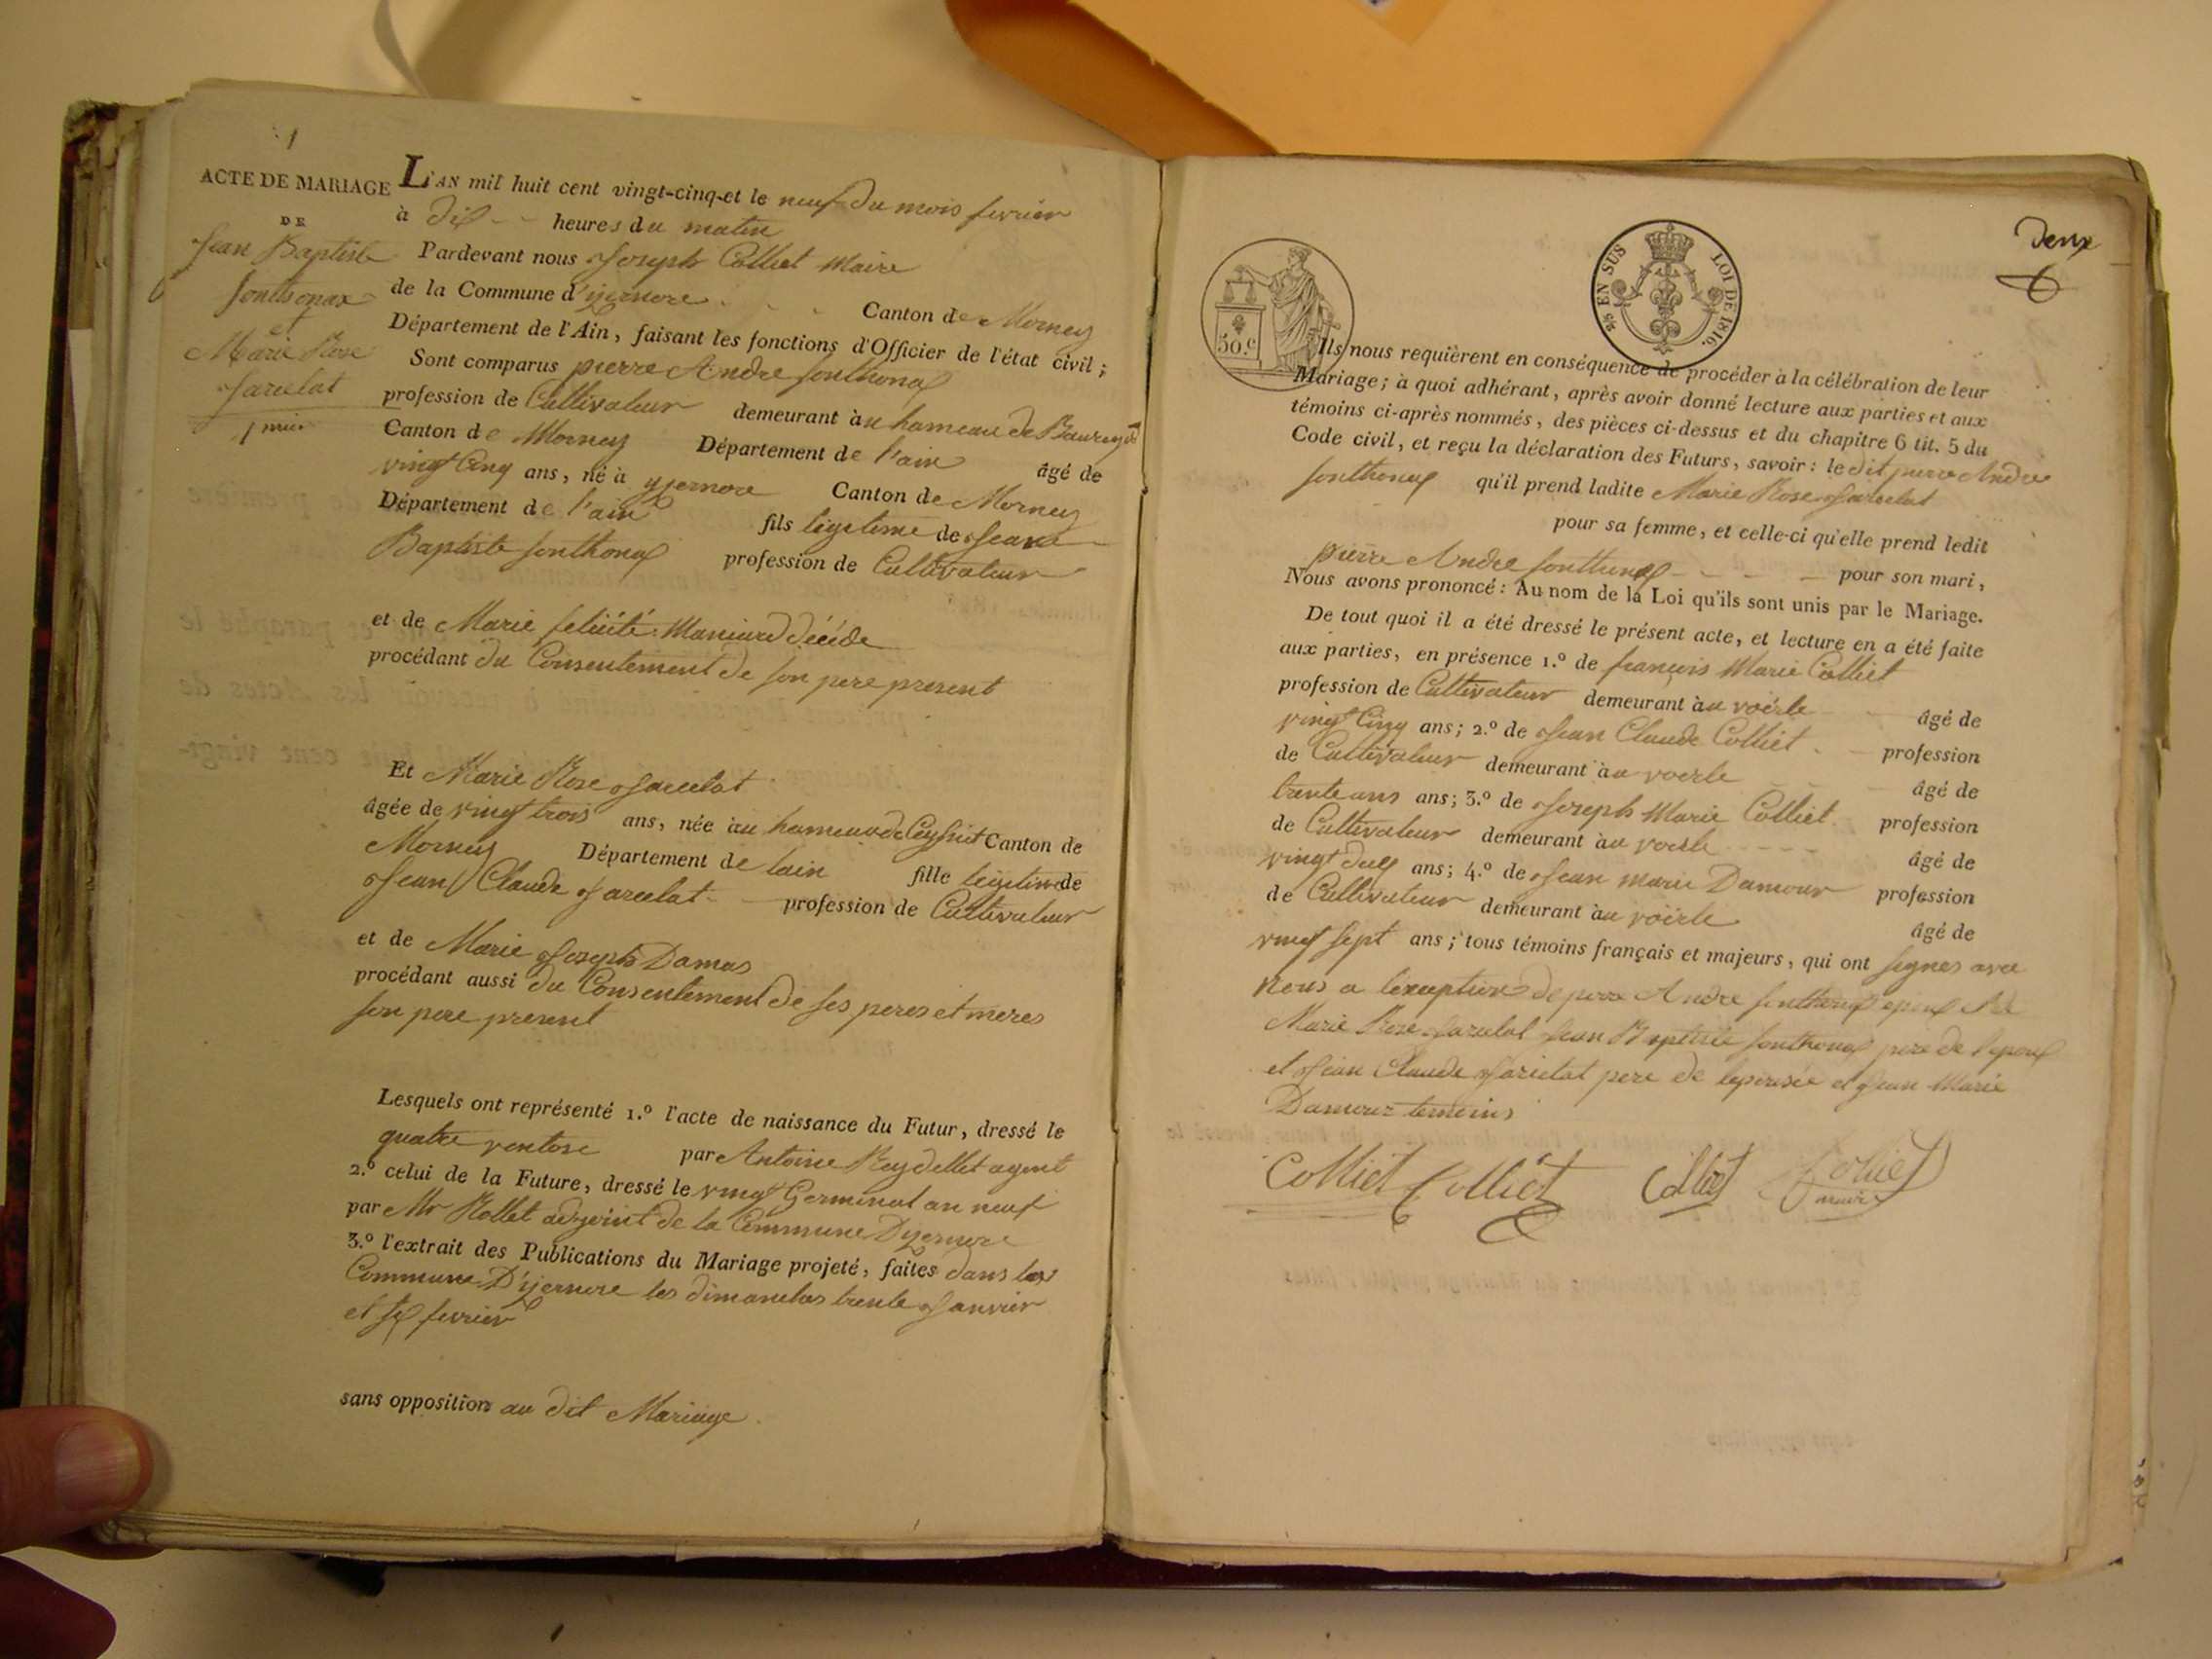 1
ACTE DE MARIAGE
DE
Jean Baptiste
fonthonax
et
Marie Rose
Jarcelat
L'AN mil huit cent vingt-cinq et le neuf du mois fevrier
à dix heures du matin
Pardevant nous Joseph Colliet Maire
de la Commune d'yzernore Canton de Mornay
Département de l'Ain, faisant les fonctions d'Officier de l'état civil;
Sont comparus pierre Andre fonthonax
profession de Cultivateur demeurant au hameau de
Canton de Mornay Département de l'ain âgé de
vingt Cinq ans, né à yzernore Canton de Mornay
Département de l'ain fils legitime de Jean
Baptiste fonthonax profession de Cultivateur
et de Marie felicité décéde
procédant du Consentement de son pere present
Et Marie Rose Jarcelat
âgée de vingt trois ans, née au hameau de Ceyssiat Canton de
Mornay Département de lain fille legitime de
Jean Claude Jarcelat profession de Cultivateur
et de Marie Joseph Damas
procédant aussi du Consentement de ses peres et meres
son pere present
Lesquels ont représenté 1.º l'acte de naissance du Futur, dressé le
quatre ventose par Antoine Reydellet agent
2.º celui de la Future, dressé le vingt Germinal an neuf
par Mr Rollet adjoint de la Commune Dyzernore
3.º l'extrait des Publications du Mariage projeté, faites dans la
Commune D'yzernore les dimanches trente Janvier
et six fevrier
sans opposition au dit Mariage.
50.c
25 EN SUS LOI DE 1816.
Deux
Ils nous requièrent en conséquence de procéder à la célébration de leur
Mariage; à quoi adhérant, après avoir donné lecture aux parties et aux
témoins ci-après nommés, des pièces ci-dessus et du chapitre 6 tit. 5 du
Code civil, et reçu la déclaration des Futurs, savoir: le dit pierre Andre
fonthonax qu'il prend ladite Marie Rose Jarcelat
pour sa femme, et celle-ci qu'elle prend ledit
pierre Andre fonthonax pour son mari,
Nous avons prononcé: Au nom de la Loi qu'ils sont unis par le Mariage.
De tout quoi il a été dressé le présent acte, et lecture en a été faite
aux parties, en présence 1.º de françois Marie Colliet
profession de Cultivateur demeurant au voërle âgé de
vingt Cinq ans; 2.º de Jean Claude Colliet profession
de Cultivateur demeurant au voerle âgé de
trente ans ans; 3.º de Joseph Marie Colliet profession
de Cultivateur demeurant au voerle âgé de
vingt ans; 4.º de Jean marie Damour profession
de Cultivateur demeurant au voërle âgé de
vingt sept ans; tous témoins français et majeurs, qui ont signes avec
Nous a l'exception de pierre Andre fonthonax epoux
Marie Rose Jarcelat Jean Baptiste fonthonax pere de l'epoux
et Jean Claude Jarcelat pere de lepousée et Jean Marie
Damour temoins
Colliet Colliet Colliet Colliet
maire